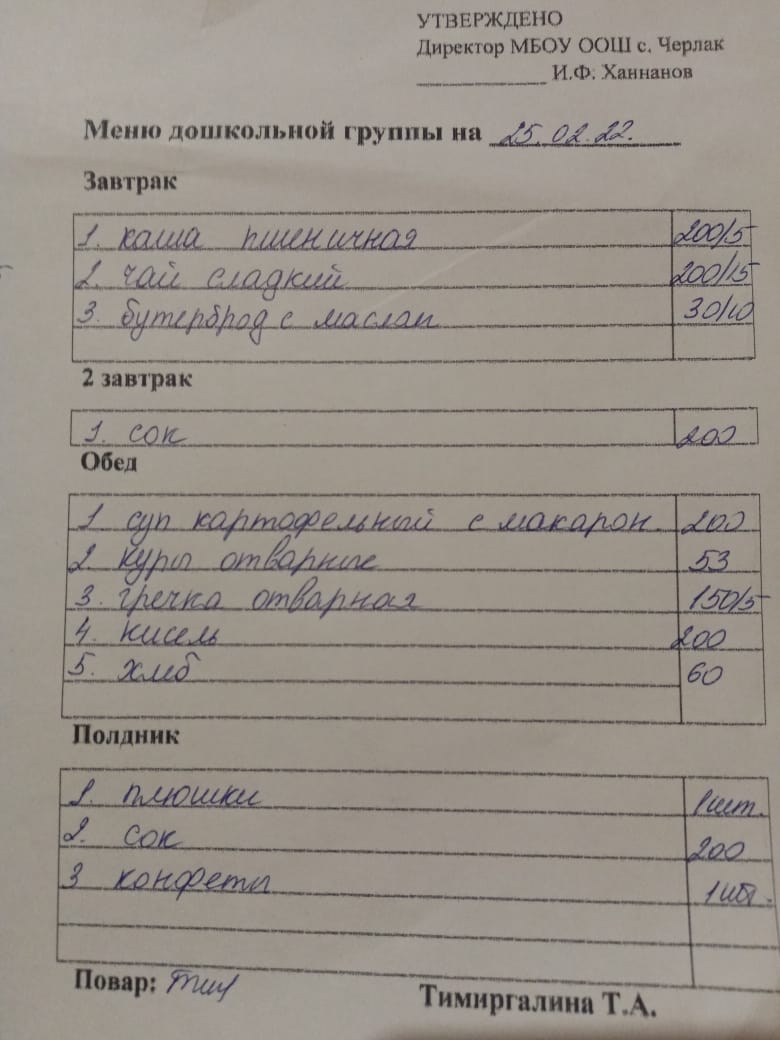 УТВЕРЖДЕНО
Директор МБОУ ООШ с. Черлак
____________ И.Ф. Ханнанов
Меню дошкольной группы на 25.02.22.
Завтрак
1. каша пшеничная 200/5
2. чай сладкий 200/15
3. бутерброд с маслом 30/10
2 завтрак
1. сок 200
Обед
1 суп картофельный с макарон. 200
2. куры отварные 53
3. гречка отварная 150/5
4. кисель 200
5. хлеб 60
Полдник
1. плюшки 1 шт.
2. сок 200
3 конфеты 1 шт.
Повар:
Тимиргалина Т.А.